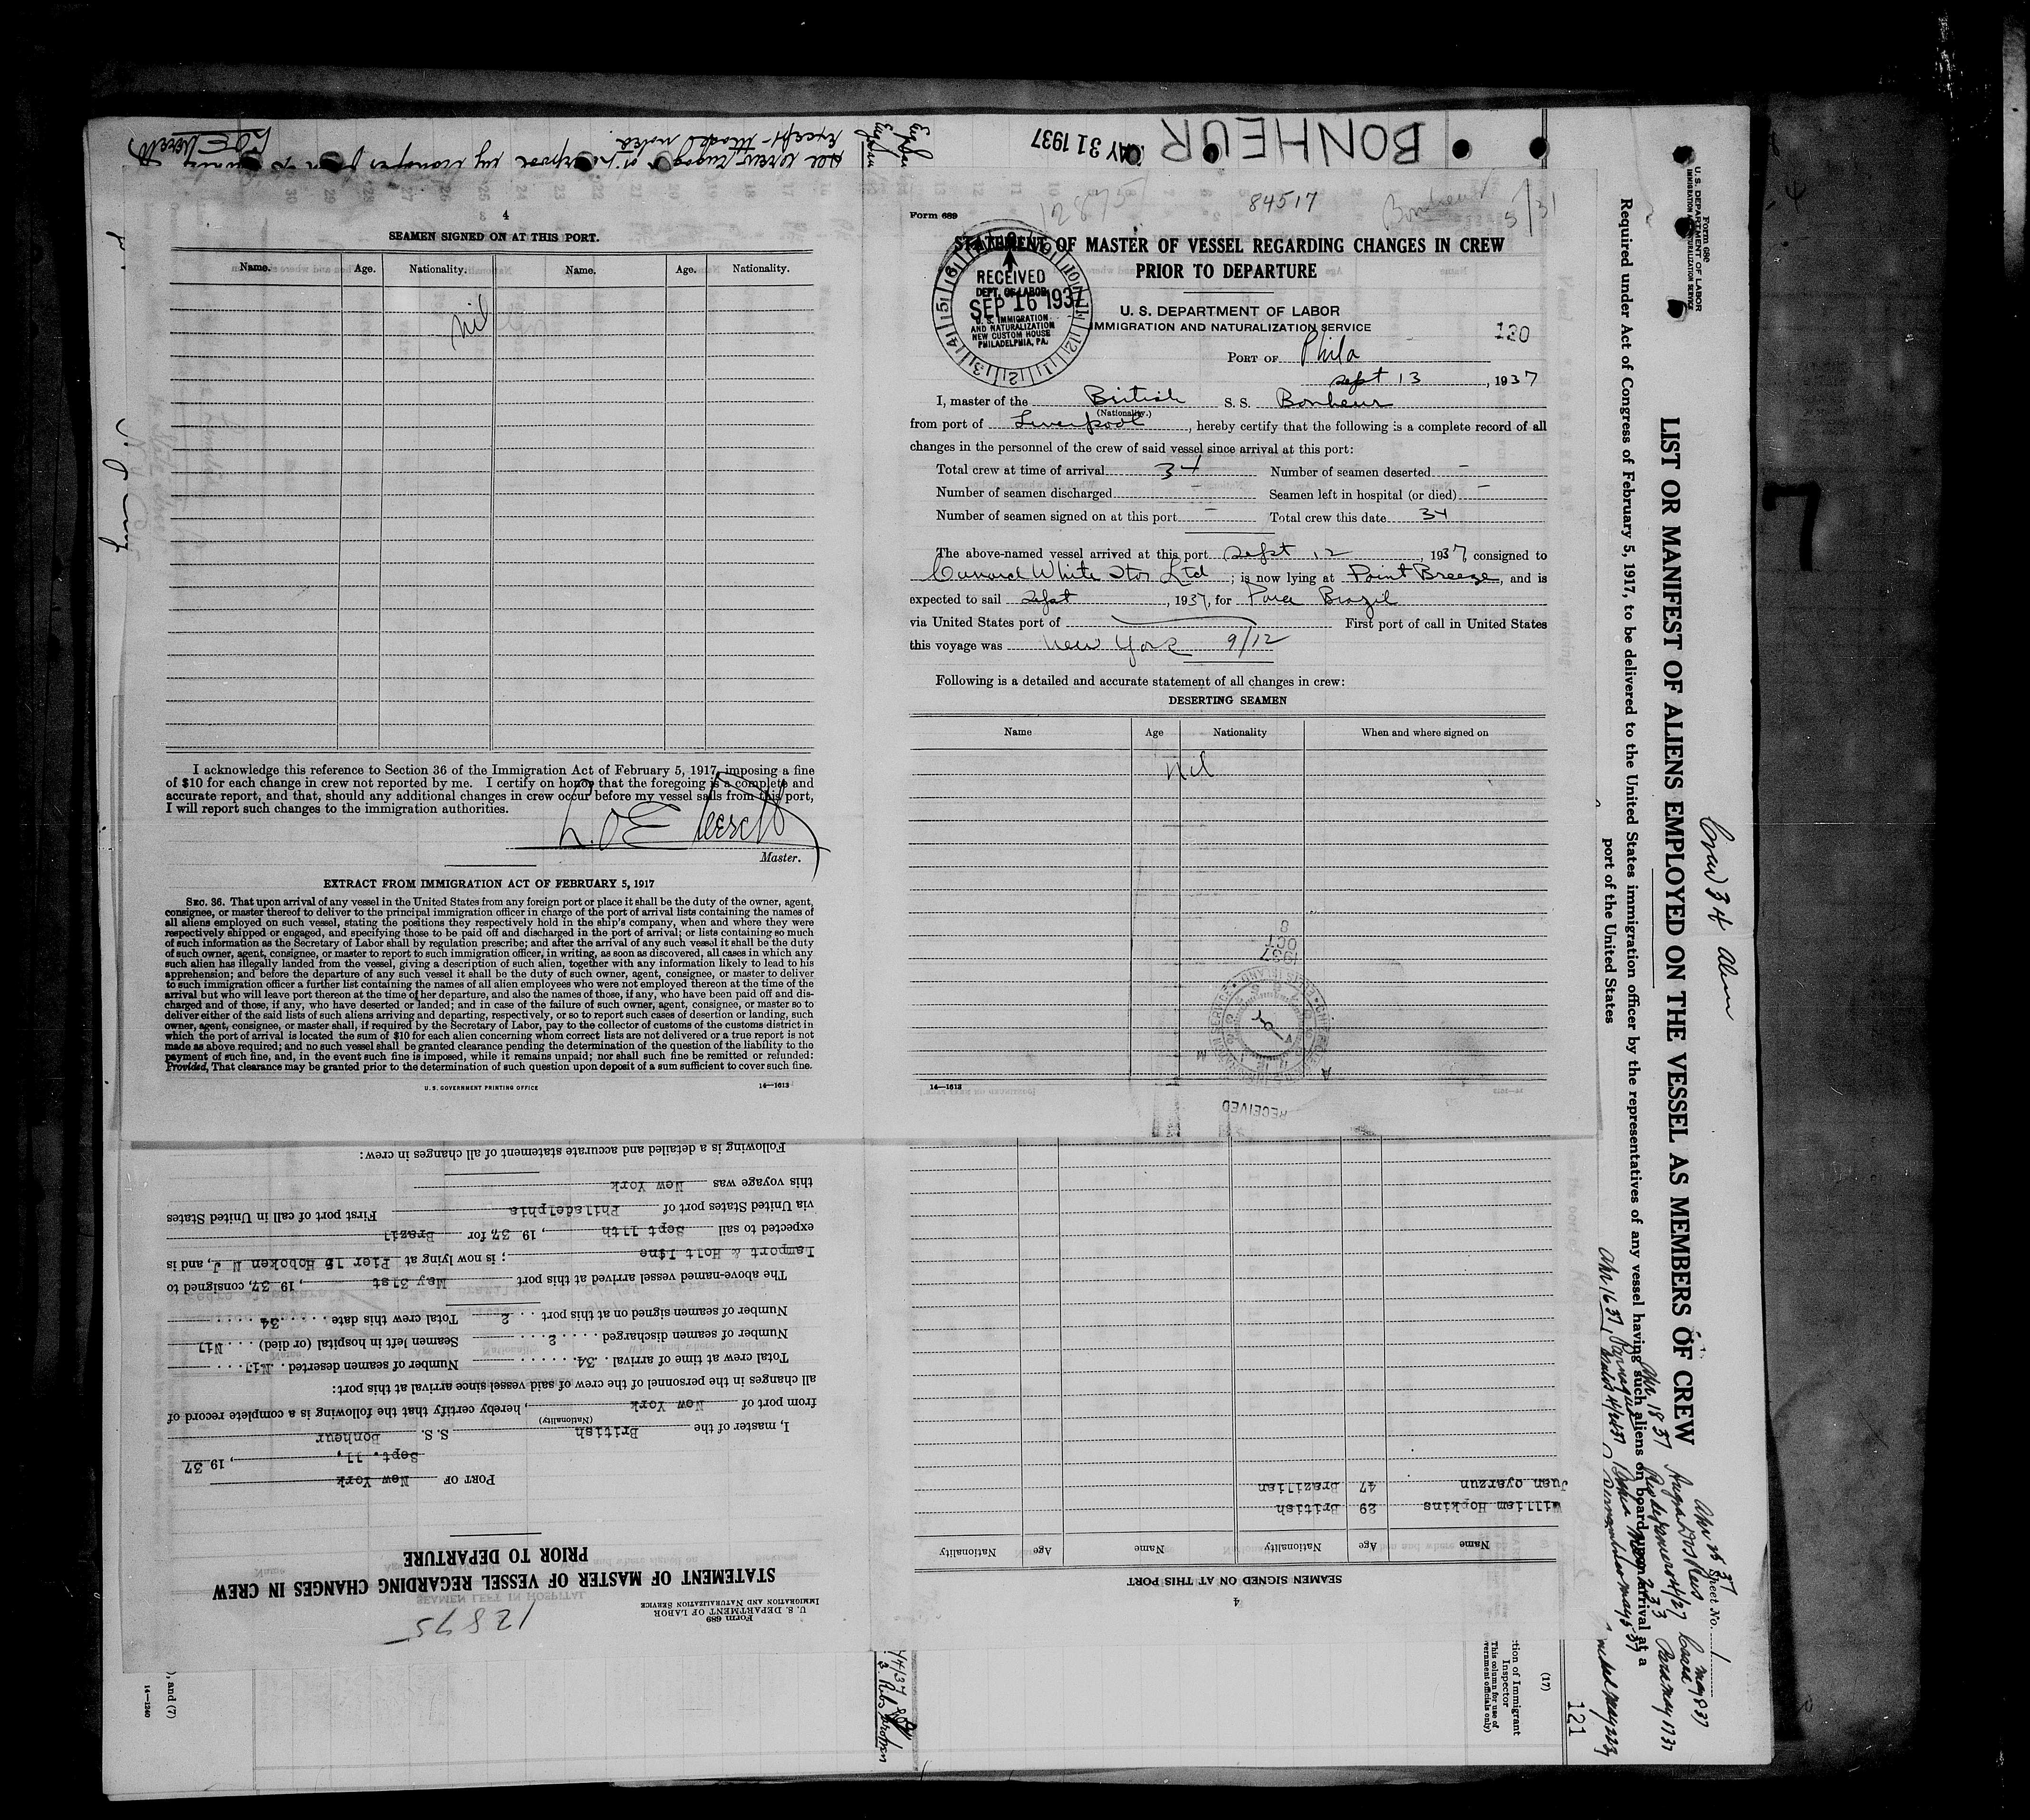 BONHEUR
MAY 31 1937
4
SEAMEN SIGNED ON AT THIS PORT.
Name. Age. Nationality. Name. Age. Nationality.
nil
I acknowledge this reference to Section 36 of the Immigration Act of February 5, 1917, imposing a fine
of $10 for each change in crew not reported by me. I certify on honor that the foregoing is a complete and
accurate report, and that, should any additional changes in crew occur before my vessel sails from this port,
I will report such changes to the immigration authorities.
Master.
EXTRACT FROM IMMIGRATION ACT OF FEBRUARY 5, 1917
SEC. 36. That upon arrival of any vessel in the United States from any foreign port or place it shall be the duty of the owner, agent,
consignee, or master thereof to deliver to the principal immigration officer in charge of the port of arrival lists containing the names of
all aliens employed on such vessel, stating the positions they respectively hold in the ship's company, when and where they were
respectively shipped or engaged, and specifying those to be paid off and discharged in the port of arrival; or lists containing so much
of such information as the Secretary of Labor shall by regulation prescribe; and after the arrival of any such vessel it shall be the duty
of such owner, agent, consignee, or master to report to such immigration officer, in writing, as soon as discovered, all cases in which any
such alien has illegally landed from the vessel, giving a description of such alien, together with any information likely to lead to his
apprehension; and before the departure of any such vessel it shall be the duty of such owner, agent, consignee, or master to deliver
to such immigration officer a further list containing the names of all alien employees who were not employed thereon at the time of the
arrival but who will leave port thereon at the time of her departure, and also the names of those, if any, who have been paid off and dis-
charged and of those, if any, who have deserted or landed; and in case of the failure of such owner, agent, consignee, or master so to
deliver either of the said lists of such aliens arriving and departing, respectively, or so to report such cases of desertion or landing, such
owner, agent, consignee, or master shall, if required by the Secretary of Labor, pay to the collector of customs of the customs district in
which the port of arrival is located the sum of $10 for each alien concerning whom correct lists are not delivered or a true report is not
made as above required; and no such vessel shall be granted clearance pending the determination of the question of the liability to the
payment of such fine, and, in the event such fine is imposed, while it remains unpaid; nor shall such fine be remitted or refunded:
Provided, That clearance may be granted prior to the determination of such question upon deposit of a sum sufficient to cover such fine.
U. S. GOVERNMENT PRINTING OFFICE 14—1613
Form 689
12875 84517 Bonheur 5/31
STATEMENT OF MASTER OF VESSEL REGARDING CHANGES IN CREW
PRIOR TO DEPARTURE
RECEIVED
DEPT. OF LABOR
SEP 16 1937
U. S. IMMIGRATION
AND NATURALIZATION
NEW CUSTOM HOUSE
PHILADELPHIA, PA.
U. S. DEPARTMENT OF LABOR
IMMIGRATION AND NATURALIZATION SERVICE
120
PORT OF Phila
Sept 13, 1937
I, master of the British S. S. Bonheur
(Nationality.)
from port of Liverpool, hereby certify that the following is a complete record of all
changes in the personnel of the crew of said vessel since arrival at this port:
Total crew at time of arrival 34 Number of seamen deserted –
Number of seamen discharged – Seamen left in hospital (or died) –
Number of seamen signed on at this port – Total crew this date 34
The above-named vessel arrived at this port Sept 12, 1937 consigned to
Cunard White Star Ltd; is now lying at Point Breeze, and is
expected to sail Sept, 1937, for Para Brazil
via United States port of First port of call in United States
this voyage was New York 9/12
Following is a detailed and accurate statement of all changes in crew:
DESERTING SEAMEN
Name Age Nationality When and where signed on
nil
1937
OCT
8
RECEIVED
14—1612
Form 689
U. S. DEPARTMENT OF LABOR
IMMIGRATION AND NATURALIZATION SERVICE
12875
STATEMENT OF MASTER OF VESSEL REGARDING CHANGES IN CREW
PRIOR TO DEPARTURE
PORT OF New York
Sept. 11, 1937
I, master of the British S. S. Bonheur
(Nationality)
from port of New York, hereby certify that the following is a complete record of
all changes in the personnel of the crew of said vessel since arrival at this port:
Total crew at time of arrival 34 Number of seamen deserted Nil
Number of seamen discharged 2 Seamen left in hospital (or died) Nil
Number of seamen signed on at this port 2 Total crew this date 34
The above-named vessel arrived at this port May 31st, 1937, consigned to
Lamport & Holt Line; is now lying at Pier 15 Hoboken N J, and is
expected to sail Sept 11th, 1937, for Brazil
via United States port of Philadelphia First port of call in United States
this voyage was New York
Following is a detailed and accurate statement of all changes in crew:
4
SEAMEN SIGNED ON AT THIS PORT
Name Age Nationality Name Age Nationality
William Hopkins 29 British
Juan Oyarzun 47 Brazilian
Form 689
U. S. DEPARTMENT OF LABOR
IMMIGRATION AND NATURALIZATION SERVICE
LIST OR MANIFEST OF ALIENS EMPLOYED ON THE VESSEL AS MEMBERS OF CREW
Required under Act of Congress of February 5, 1917, to be delivered to the United States immigration officer by the representatives of any vessel having such aliens on board upon arrival at a
port of the United States
Crew 34
Sheet No. 1
121
(17)
tion of Immigrant
Inspector
This column for use of
vernment officials only)
, and (7)
14—1240
7